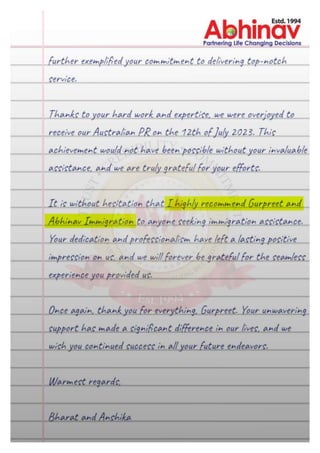 Estd. 1994
Abhinav
Partnering Life Changing Decisions
further exemplified your commitment to delivering top-notch
service.
Thanks to your hard work and expertise, we were overjoyed to
receive our Australian PR on the 12th of July 2023. This
achievement would not have been possible without your invaluable
assistance, and we are truly grateful for your efforts.
It is without hesitation that I highly recommend Gurpreet and
Abhinav Immigration to anyone seeking immigration assistance.
Your dedication and professionalism have left a lasting positive
impression on us, and we will forever be grateful for the seamless
experience you provided us.
Once again, thank you for everything, Gurpreet. Your unwavering
support has made a significant difference in our lives, and we
wish you continued success in all your future endeavors.
Warmest regards,
Bharat and Anshika